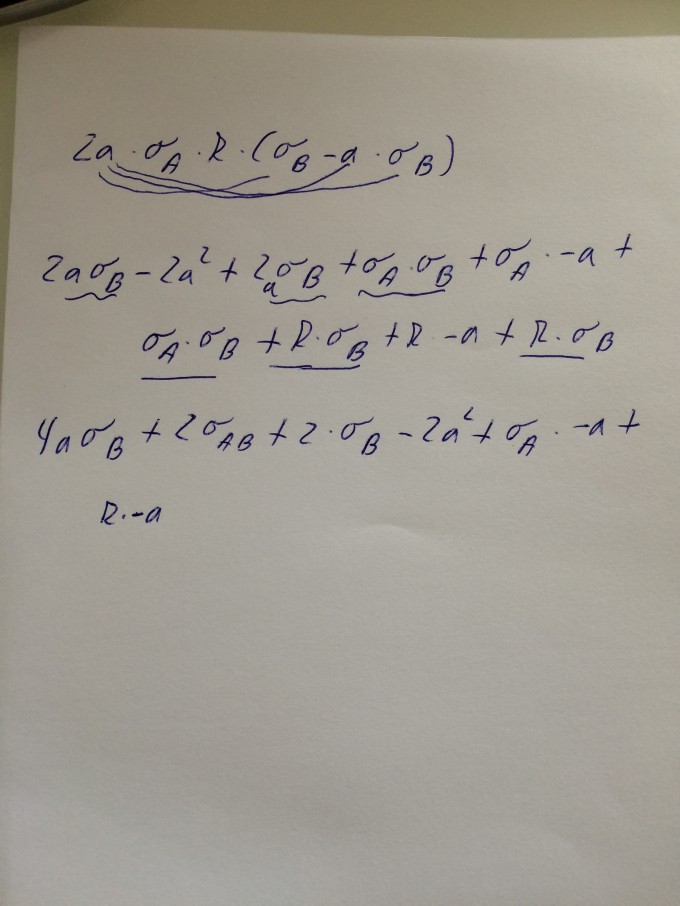 2a · σ_A · R · (σ_B - a · σ_B)
2aσ_B - 2a² + 2aσ_B + σ_A · σ_B + σ_A · -a +
σ_A · σ_B + R · σ_B + R · -a + R · σ_B
4aσ_B + 2σ_AB + 2 · σ_B - 2a² + σ_A · -a +
R · -a